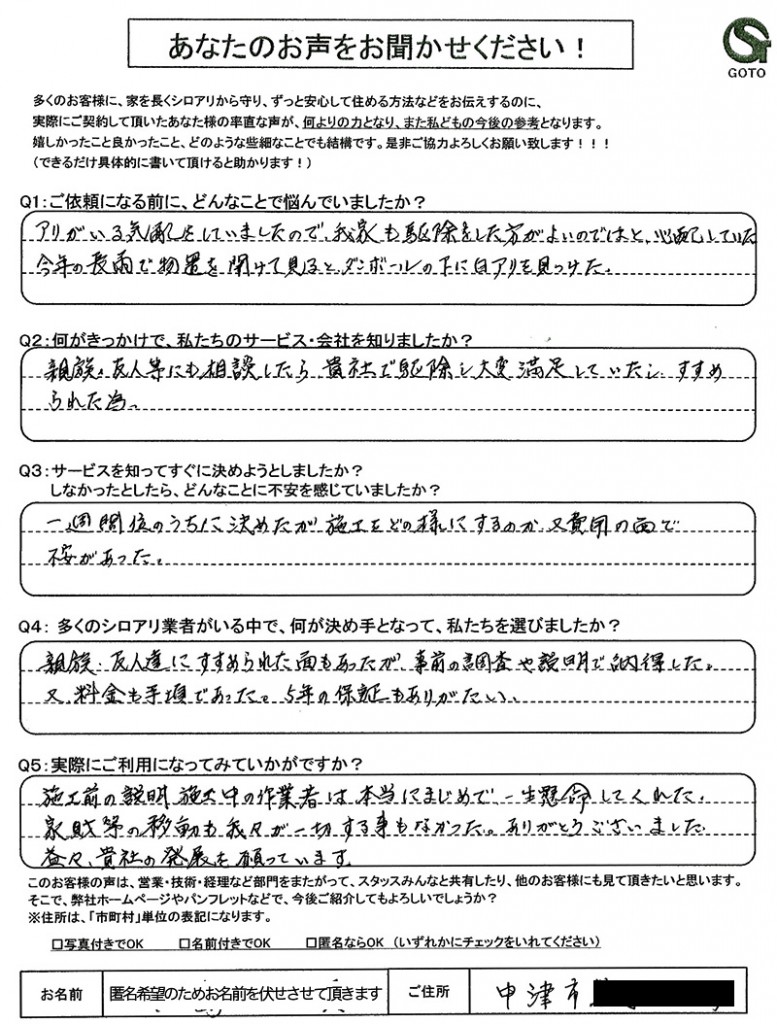 あなたのお声をお聞かせください！
GOTO
多くのお客様に、家を長くシロアリから守り、ずっと安心して住める方法などをお伝えするのに、
実際にご契約して頂いたあなた様の率直な声が、何よりの力となり、また私どもの今後の参考となります。
嬉しかったこと良かったこと、どのような些細なことでも結構です。是非ご協力よろしくお願い致します！！！
（できるだけ具体的に書いて頂けると助かります！）
Q1：ご依頼になる前に、どんなことで悩んでいましたか？
アリがいる気配をしていましたので、我家も駆除をした方がよいのではと、心配していた
今年の長雨で物置を開けて見ると、ダンボールの下に白アリを見つけた。
Q2：何がきっかけで、私たちのサービス・会社を知りましたか？
親族、友人等にも相談したら、貴社で駆除し大変満足していたし、すすめ
られた為。
Q3：サービスを知ってすぐに決めようとしましたか？
しなかったとしたら、どんなことに不安を感じていましたか？
一週間位のうちに決めたが施工をどの様にするのか、又費用の面で
不安があった。
Q4： 多くのシロアリ業者がいる中で、何が決め手となって、私たちを選びましたか？
親族、友人達にすすめられた面もあったが、事前の調査や説明で納得した。
又、料金も手頃であった。5年の保証もありがたい。
Q5：実際にご利用になってみていかがですか？
施工前の説明、施工中の作業者は、本当にまじめで、一生懸命してくれた。
家財等の移動も我々が一切する事もなかった。ありがとうございました。
益々、貴社の発展を願っています。
このお客様の声は、営業・技術・経理など部門をまたがって、スタッスみんなと共有したり、他のお客様にも見て頂きたいと思います。
そこで、弊社ホームページやパンフレットなどで、今後ご紹介してもよろしいでしょうか？
※住所は、「市町村」単位の表記になります。
□写真付きでOK □名前付きでOK □匿名ならOK （いずれかにチェックをいれてください）
お名前 匿名希望のためお名前を伏せさせて頂きます ご住所 中津市